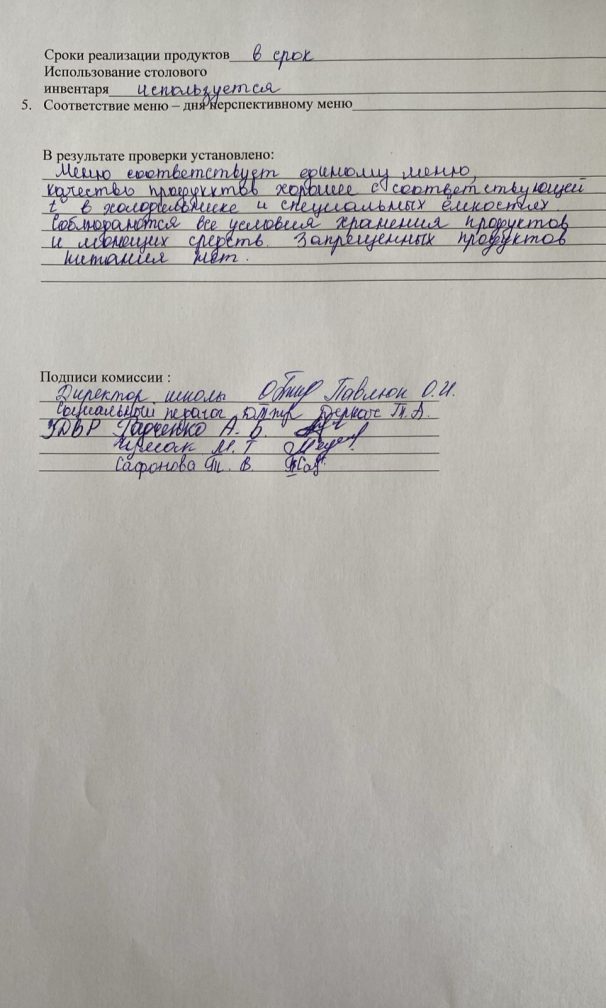 Сроки реализации продуктов в срок
Использование столового
инвентаря используется
5. Соответствие меню – дня перспективному меню
В результате проверки установлено:
Меню соответствует единому меню,
качество продуктов хорошее с соответствующей
t° в холодильнике и специальных ёмкостях
Соблюдаются все условия хранения продуктов
и моющих средств. Запрещенных продуктов
питания нет.
Подписи комиссии :
Директор школы Павлюк О.И.
Социальный педагог Т.А.
ЗДВР Гарченко А. В.
М. Т.
Сафонова Т. В.